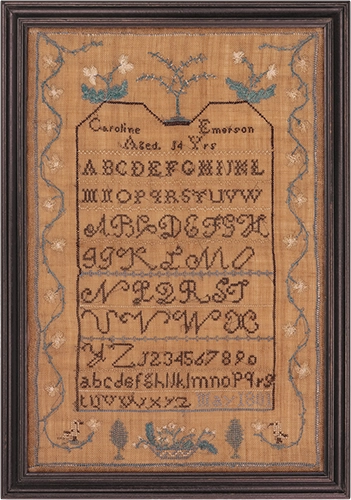 Caroline Emerson
Aged 14 Yrs
ABCDEFGHIJKL
MNOPQRSTUVW
ABCDEFGH
IJKLMO
NPQRST
UVWX
YZ 1234567890
abcdefghijklmnopqrs
tuvwxyz